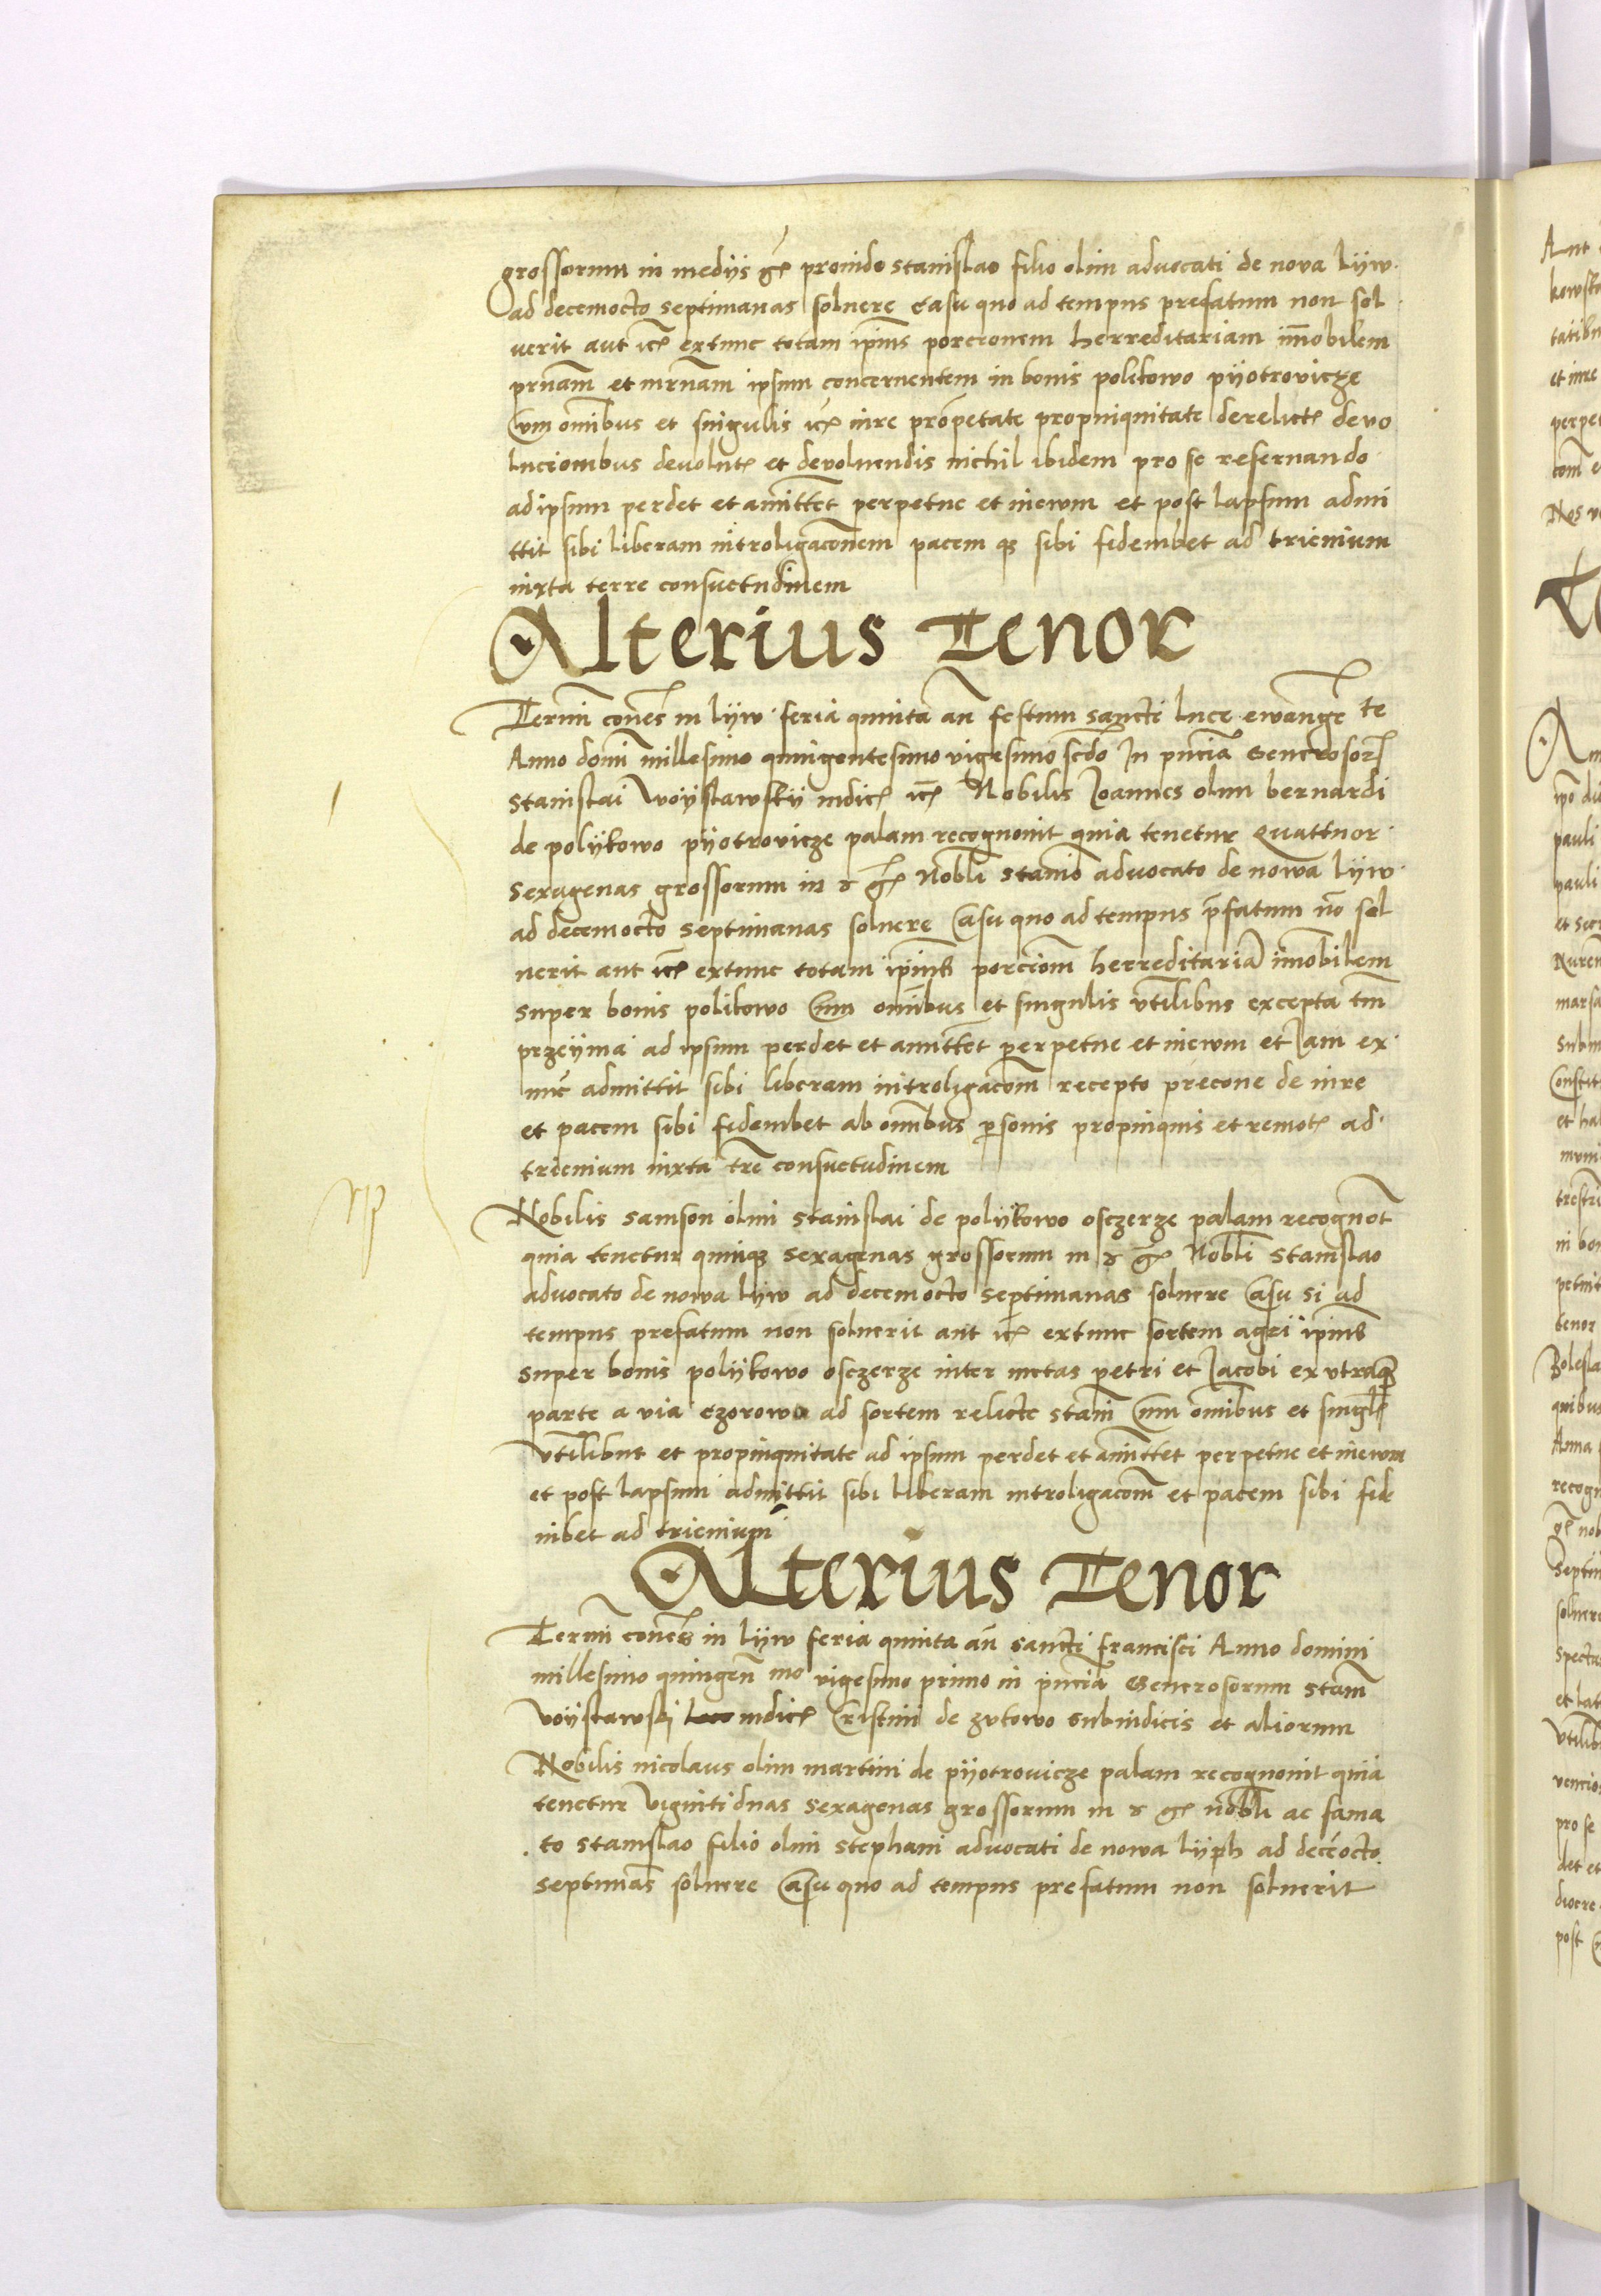 grossorum in medijs gr̃ prouido Stanislao filio olim aduocati de nova lijw
ad decemocto septimanas soluere casu quo ad tempus prefatum non sol
uerit aut ic̃ extunc totam ip̃ius porcionem herreditariam im̃obilem
prñam et mrñam ipsum concernentem in bonis polikowo pijotrovicze
Cum om̃ibus et singulis ic̃ iure prop̃etate propinquitate derelict̃ devo
lucionibus devolut̃ et devoluendis nichil ibidem pro se reseruando
ad ipsum perdet et amittet perpetue et in ewm et post lapsum admi
ttit sibi liberam introligac̃onem pacem q3 sibi fideiubet ad trienium
iuxta terre consuetudinem
Alterius Tenor
Term̃i con̄es in lijw feria quinta añ festum sancti luce ewange te
Anno dom̃i millesimo quingentesimo vigesimo sc̃do In pñcia Generosor̃
Stanislai Woijslawskij iudic̃ ic̃ Nobilis Joannes olim bernardi
de polijkowo pijotrovicze palam recognouit quia tenetur Quattuor
sexagenas grossorum in ꝛ gr̃ Nobl̃i Stanis̃o advocato de nowa lijw
ad decemocto septimanas soluere Casu quo ad tempus p̃fatum nõ sol
uerit aut ic̃ extunc totam ip̃ius porciom̃ herreditariã im̃obilem
super bonis polikowo Cum om̃ibus et singulis vtilibus excepta tm̃
przeijma ad ipsum perdet et amittet perpetue et in ewm et Iam ex
nuc̃ admittit sibi liberam introligacom̃ recepto precone de iure
et pacem sibi fideiubet ab om̃ibus personis propinquis et remot̃ ad
trienium iuxta trẽ consuetudinem
Nobilis Samson olim Stanislai de polijkowo osczerze palam recognoṽt
quia tenetur quinq3 sexagenas grossorum in ꝛ gr̃ Nobl̃i Stanislao
advocato de nowa lijw ad decemocto septimanas soluere Casu si ad
tempus prefatum non soluerit aut ic̃ extunc sortem agri ip̃ius
super bonis polijkowo osczerze inter metas petri et Jacobi ex vtraq3
parte a via ezorowa ad sortem relicte Stani Cum om̃ibus et singl̃
vtilibut et propinquitate ad ipsum perdet et amittet perpetue et in ewm
et post lapsum admittit sibi liberam introligacom̃ et pacem sibi fide
iubet ad trienium
Alterius Tenor
Term̃i con̄es in lijw feria quinta añ sancti francisci Anno domini
millesimo quingeñ mo vigesimo primo in pñcia Generosorum Stañ
Voijslawskj iudic̃ Cristini de zukowo Subiudicis et aliorum
Nobilis nicolaus olim martini de pijotrouicze palam recognouit quia
tenetur viginti duas sexagenas grossorum in ꝛ gr̃ nobl̃i ac fama
to Stanislao filio olim Stephani advocati de nowa lijph ad decẽocto
septimãs soluere Casu quo ad tempus prefatum non soluerit